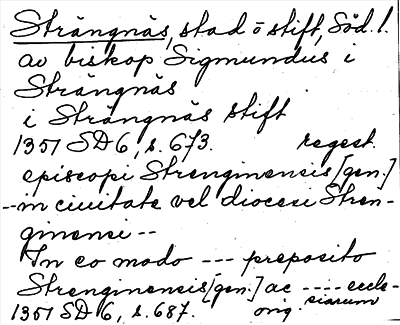 Strängnäs, stad o stift, Söd. l.
av biskop Sigmundus i
Strängnäs
i Strängnäs stift
1351 SD 6, s. 673. regest.
episcopi Strenginensis [gen.]
-- in ciuitate vel diocesi Stren-
ginensi --
In eo modo --- preposito
Strenginensis [gen.] ac ---- eccle-
siarum
1351 SD 6, s. 687. orig.